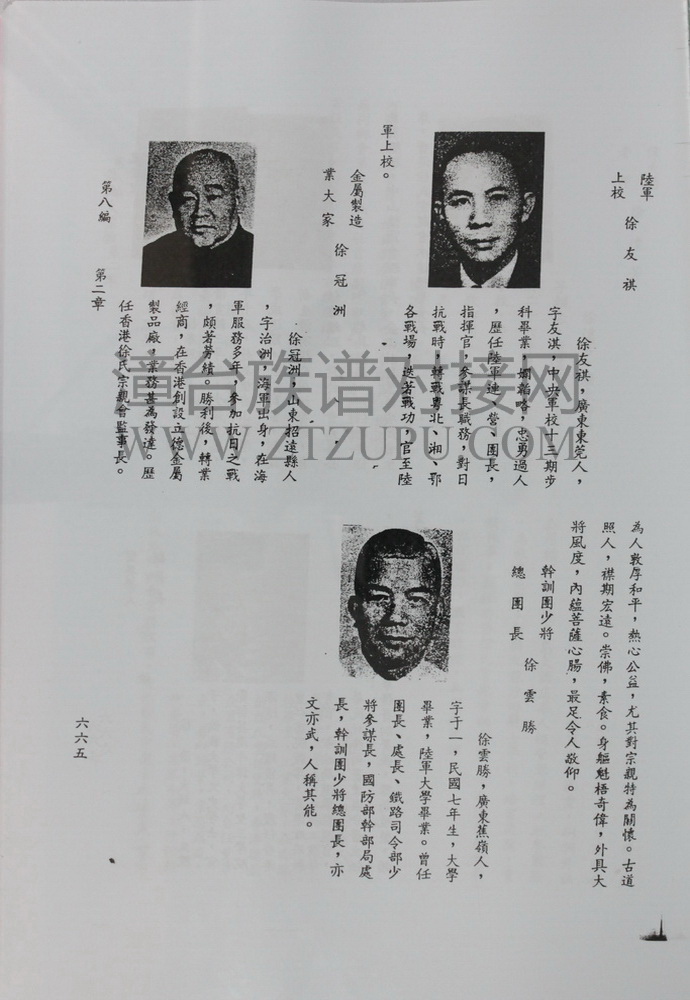 陸軍
上校
徐友祺
徐友祺，廣東東莞人，
字友淇，中央軍校十三期步
科畢業，嫺韜略，忠勇過人
，歷任陸軍連、營、團長，
指揮官，參謀長職務，對日
抗戰時，轉戰粵北、湘、鄂
各戰場，迭著戰功，官至陸
軍上校。
金屬製造
業大家
徐冠洲
徐冠洲，山東招遠縣人
，字治洲，海軍出身，在海
軍服務多年，參加抗日之戰
，頗著勞績。勝利後，轉業
經商，在香港創設立德金屬
製品廠，業務甚為發達。歷
任香港徐氏宗親會監事長。
第八編 第二章
為人敦厚和平，熱心公益，尤其對宗親特為關懷。古道
照人，襟期宏遠。崇佛，素食。身軀魁梧奇偉，外具大
將風度，內蘊菩薩心腸，最足令人敬仰。
幹訓團少將
總團長
徐雲勝
徐雲勝，廣東蕉嶺人，
字于一，民國七年生，大學
畢業，陸軍大學畢業。曾任
團長、處長、鐵路司令部少
將參謀長，國防部幹部局處
長，幹訓團少將總團長，亦
文亦武，人稱其能。
六六五
族谱对接网
WWW.ZTZUPU.COM